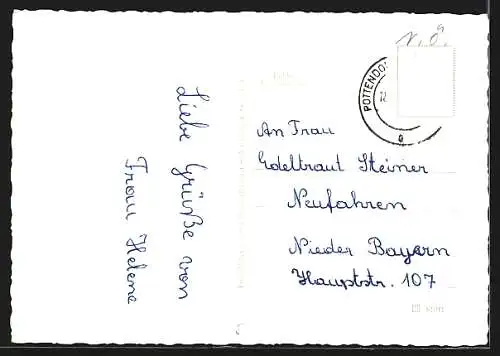 Liebe Grüße von
Frau Helene
POTTENDO
An Frau
Edeltraut Steiner
Neufahren
Nieder Bayern
Hauptstr. 107